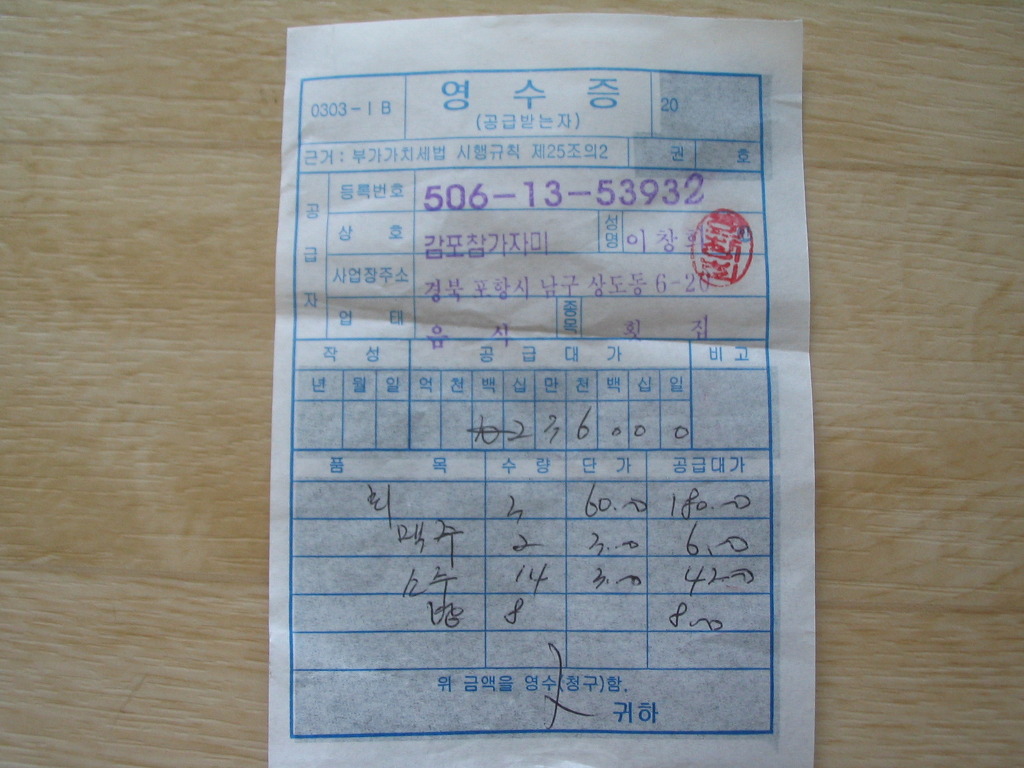 0303-1B 영수증 20
(공급받는자)
근거: 부가가치세법 시행규칙 제25조의2 권 호
공급자
등록번호 506-13-53932
상호 감포참가자미 성명 이창
사업장주소 경북 포항시 남구 상도동 6-20
업태 음식 종목 횟집
작성 공급대가 비고
년 월 일 억 천 백 십 만 천 백 십 일
2 3 6 0 0 0
품목 수량 단가 공급대가
회 3 60.00 180.00
맥주 2 3.00 6.00
소주 14 3.00 42.00
밥 8 8.00
위 금액을 영수(청구)함.
귀하